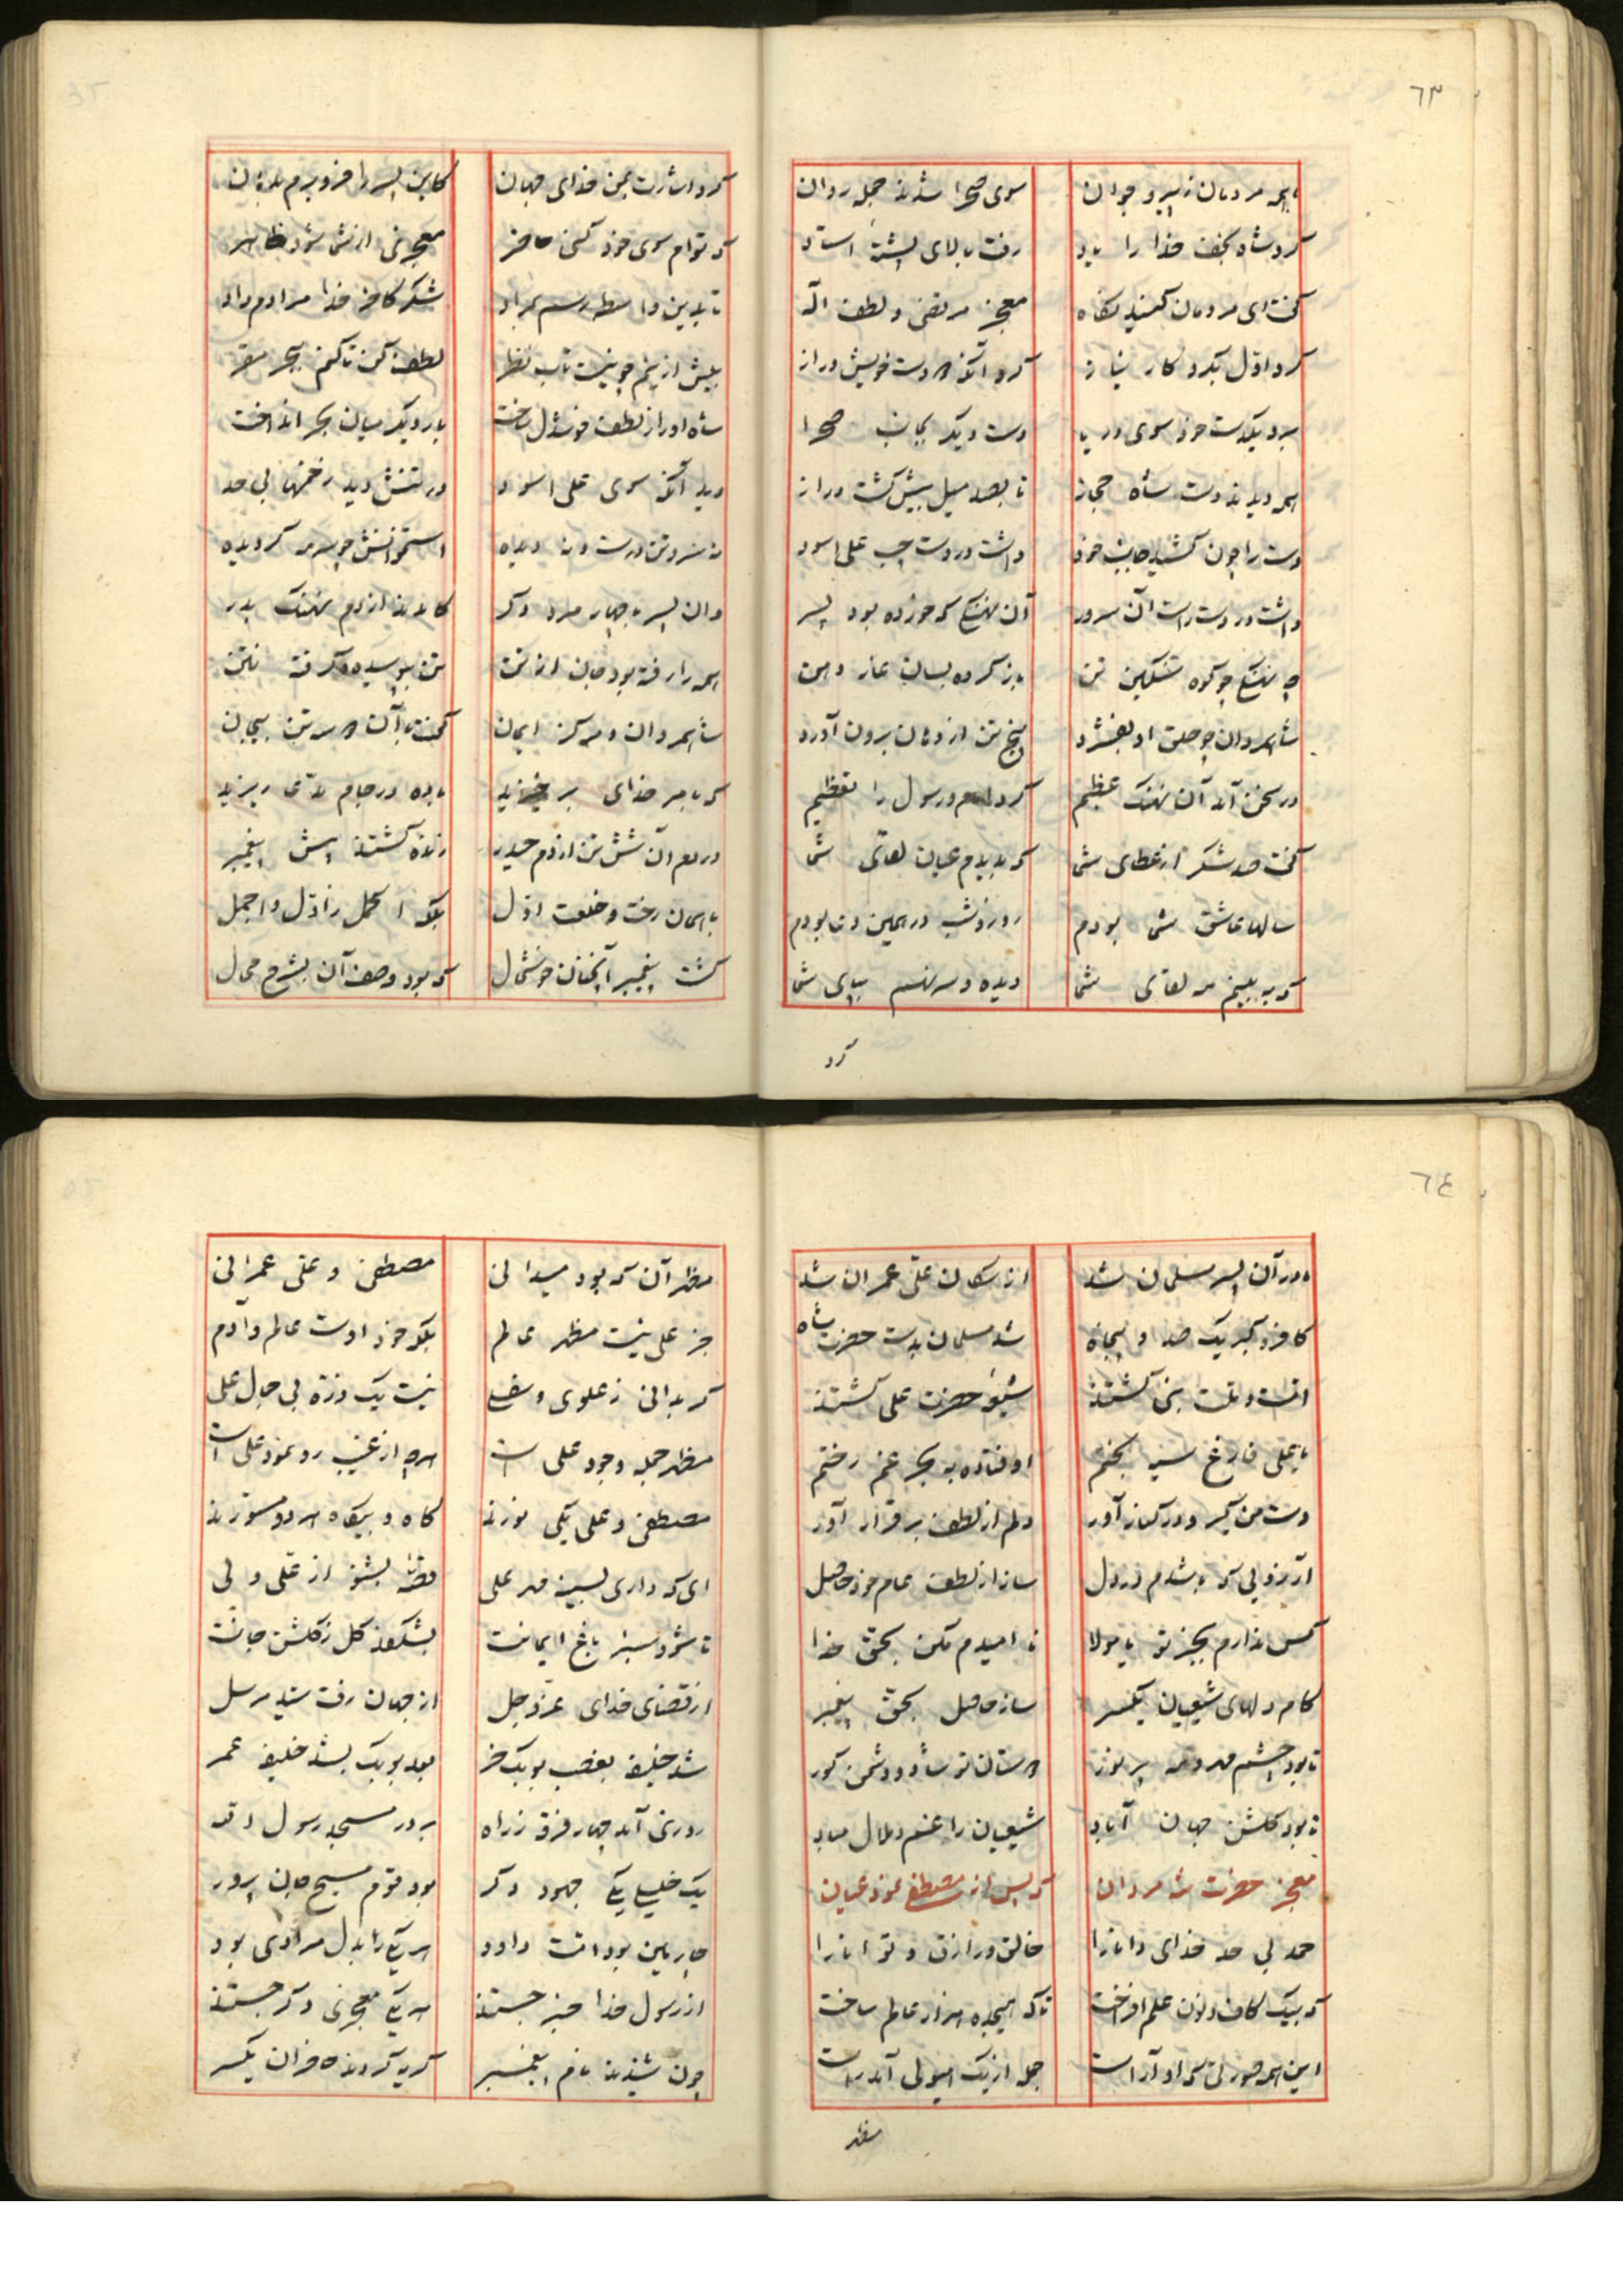 ٦٣
با همه مردمان ز پیر و جوان سوی صحرا شدند جمله روان
کرد شاه نجف خدا را یاد رفت بالای پشتهٔ استاد
گفت ای مردمان کنید نگاه معجز مرتضی و لطف اله
کرد اول بکردکار نیاز کرد آنکه دو دست خویش دراز
برد یکدست خود سوی دریا دست دیکر بجانب صحرا
همه دیدند دست شاه حجاز تا بصد میل بیش کشت دراز
دست را چون کشید جانب خود داشت در دست چپ علی اسود
داشت در دست راست آن سرور آن نهنکی که خورده بود پسر
چه نهنکی چو کوه سنکین تن باز کرده بسان غار دهن
شاه مردان چو حلق او بفشرد پنج تن از دهان برون آورد
در سخن آمد آن نهنک عظیم کرد امام و رسول را تعظیم
گفت صد شکر از عطای شما که بدیدم عیان لقای شما
سالها عاشق شما بودم روز و شب در همین دعا بودم
که به بینم مه لقای شما دیده و سر نهم بپای شما
کرد
کرد اشارت بمن خدای جهان کاین پسر را فرو برم بدهان
که توام سوی خود کنی حاضر معجزی از شما شود ظاهر
تا بدین واسطه رسم بمراد شکر کاخر خدا مرادم داد
بیش ازینم چو نیست تاب نظر لطف کن تا کنم ببحر مقر
شاه او را ز لطف خوشدل ساخت بار دیکر میان بحر انداخت
دید آنکه سوی علی اسود در تنش دید زخمها بی حد
نه سر و تن درست و نه دیده استخوانش چو سرمه کردیده
وان پسر با چهار مرد دکر کامدند از دم نهنک بدر
همه را رفته بود جان از تن تن بپوسیده و کرفته نتن
شاه مردان و مرکز ایمان گفت با آن دو سه تن بیجان
که بامر خدای برخیزید باده در جام مدعی ریزید
در دم آن شش تن از دم حیدر زنده کشتند پیش پیغمبر
با همان رخت و خلعت اول بلکه اکمل ز اول و اجمل
کشت پیغمبر آنچنان خوشحال که بود وصف آن بشرح محال
٦٤
مادر آن پسر مسلمان شد از سکان علی عمران شد
کافر و کبر یک صد و پنجاه شد مسلمان بدست حضرت شاه
امت و ملت نبی کشتند شیعهٔ حضرت علی کشتند
یا علی فارغ سیه بختم اوفتاده به بحر غم رختم
دست من کیر و در کنار آور دلم از لطف برقرار آور
آرزوئی که باشدم در دل ساز از لطف عام خود حاصل
کس ندارم بجز تو یا مولا نا امیدم مکن بحق خدا
کام دلهای شیعیان یکسر ساز حاصل بحق پیغمبر
تا بود چشم مهر و مه پر نور دوستان تو شاد و دشمن کور
تا بود کلشن جهان آباد شیعیان را غم و ملال مباد
معجز حضرت شه مردان که پس از مصطفی نمود عیان
حمد بی حد خدای دانا را خالق و رازق و توانا را
که بیک کاف و نون علم افراخت تا که هیجده هزار عالم ساخت
این همه صورتی که او آراست جمله از یک هیولی آمد راست
مظهر
مظهر آن که بود میدانی مصطفی و علی عمرانی
جز علی نیست مظهر عالم بلکه خود اوست عالم و آدم
کر بدانی ز علوی و سفلی نیست یک ذره بی جمال علی
مظهر جمله وجود علی است هر چه از غیب رو نمود علی است
مصطفی و علی یکی نورند کاه و بیکاه هر دو مستورند
ای که داری بسینه مهر علی قصهٔ بشنو از علی ولی
تا شود سبز باغ ایمانت بشکفد کل ز کلشن جانت
از قضای خدای عز و جل از جهان رفت سید مرسل
شد خلیفه بغصب بوبک خر بعد بوبک بشد خلیفه عمر
روزی آمد چهار فرقه ز راه بر در مسجد رسول اله
یک خلیلی یکی جهود دکر بود قوم مسیح جان پرور
چارمین بود امت داود هر یکی را بدل مرادی بود
از رسول خدا خبر جستند هر یکی معجزی دکر جستند
چون شنیدند نام پیغمبر کریه کردند حاضران یکسر